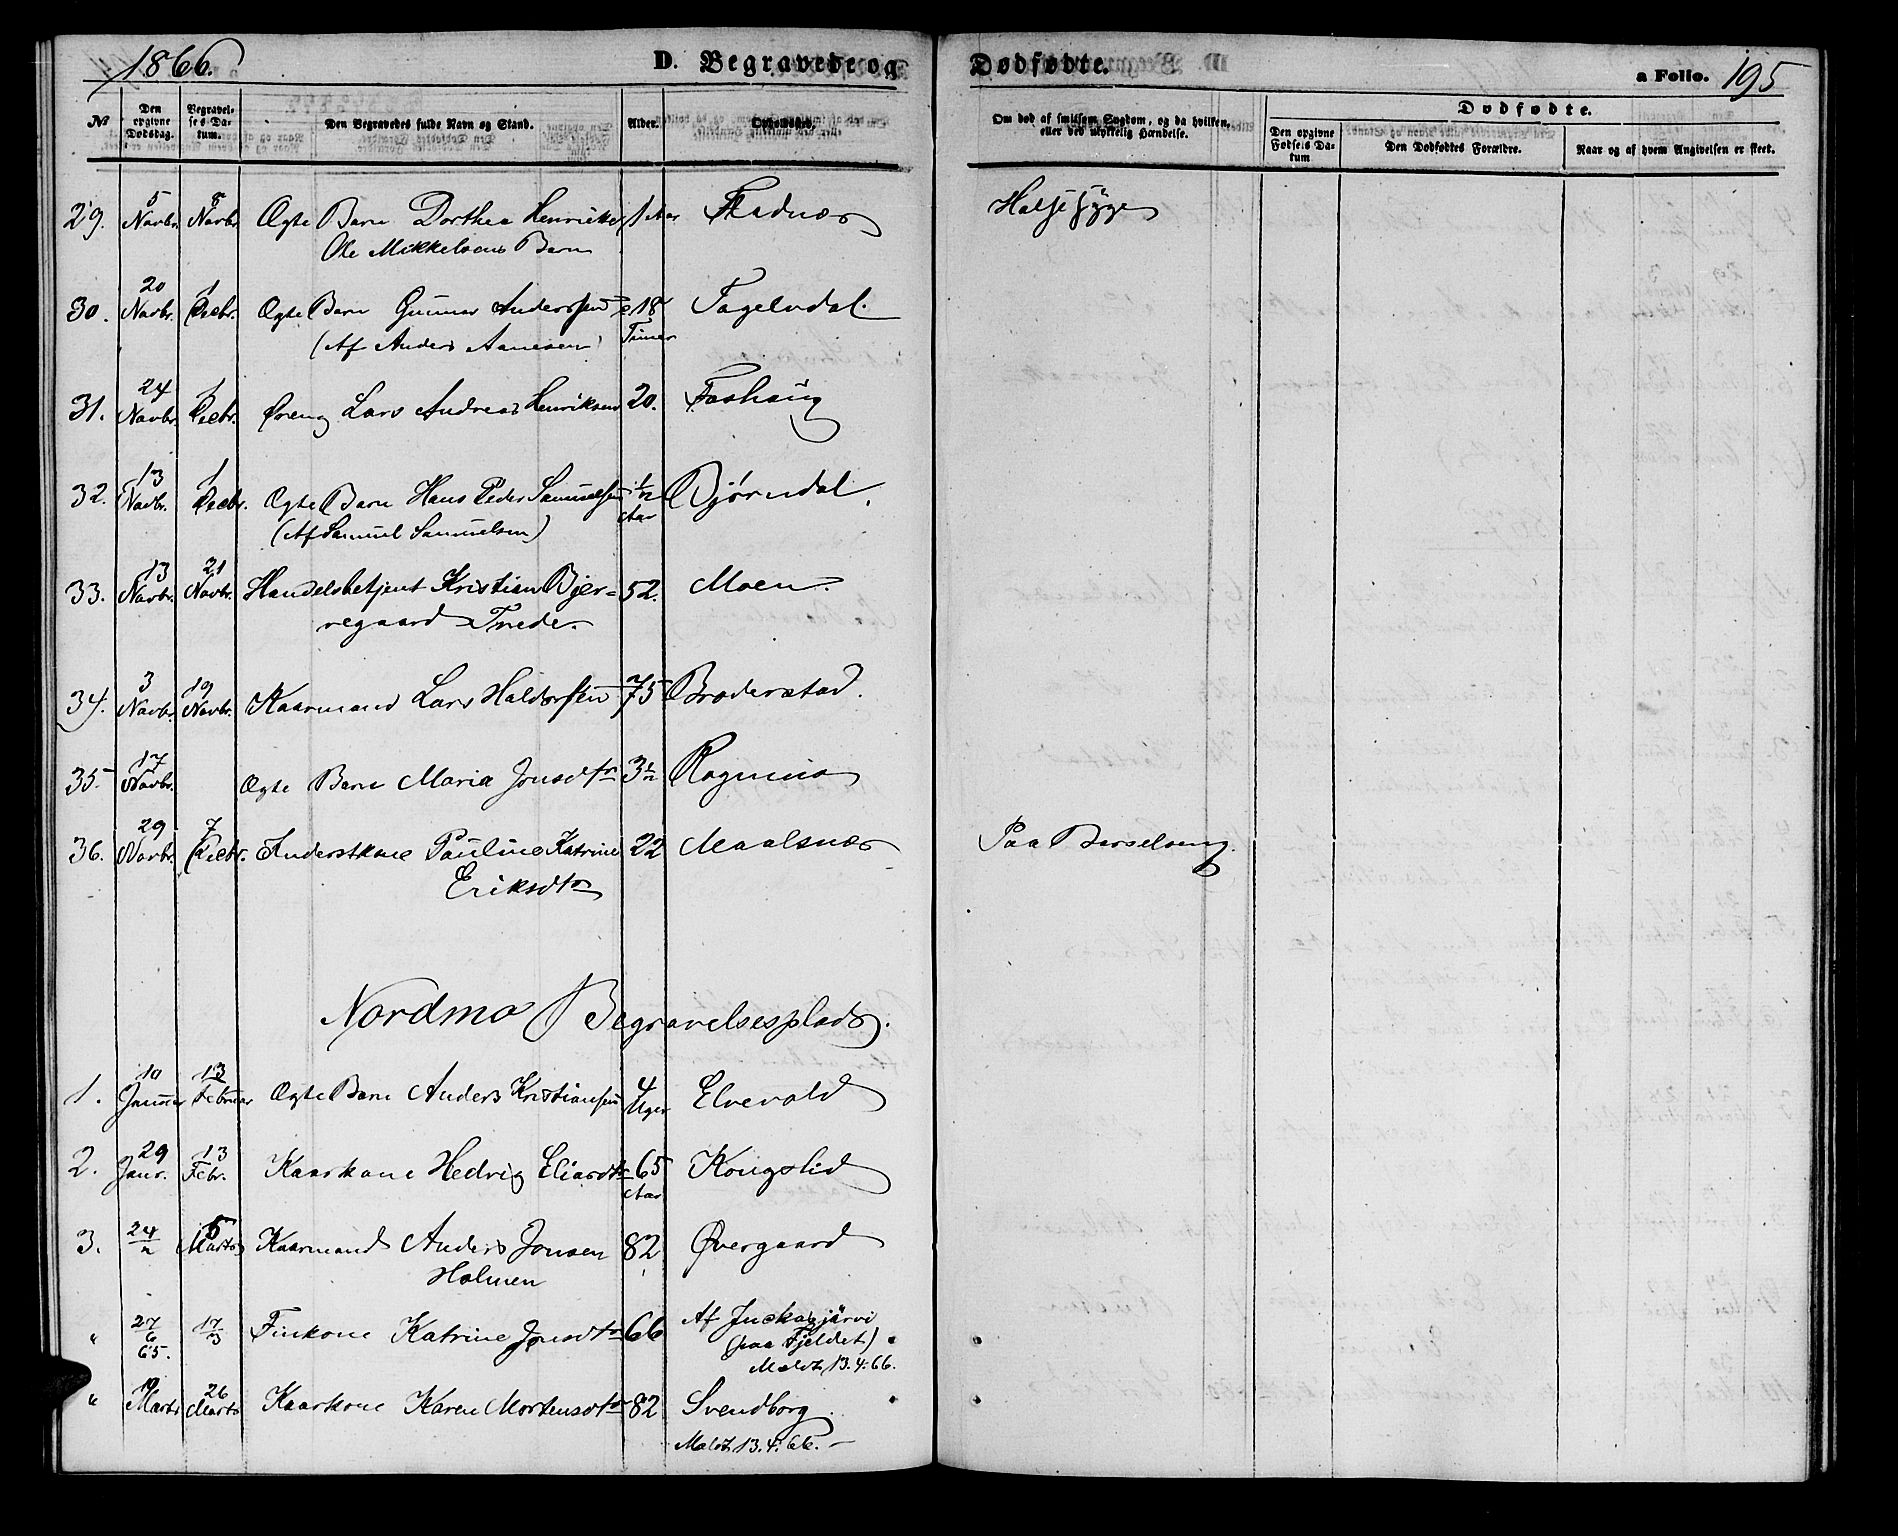 1866.
D. Begravede og Dødfødte.
a Folio. 195
№ Den opgivne Dødsdag. Begravelses Datum. Den Begravedes fulde Navn og Stand. Alder. Opholdssted. Om død af smitsom Sygdom, og da hvilken, eller ved ulykkelig Hændelse.
Dødfødte.
Den opgivne Fødsels Datum Den Dødfødtes Forældre. Naar og af hvem Angivelsen er skeet.
29. 5 Novbr. 8 Novbr. Ægte Barn Dorthea Henrikke 1 Aar Halssyge
Ole Mikkelsens Barn
30. 20 Novbr. 1 Decbr. Ægte Barn Gunnar Anderssen 18 Timer Fagelvdal.
(Af Anders Aanesen)
31. 24 Novbr. 1 Decbr. Dreng Lars Andreas Henriksen 20. Foshaug
32. 13 Novbr. 1 Decbr. Ægte Barn Hans Peder Samuelsen ½ Aar Bjørndal.
(Af Samuel Samuelsen)
33. 13 Novbr. 21 Novbr. Handelsbetjent Kristian Bjer- 52. Moen.
regaard Trede.
34. 3 Novbr. 19 Novbr. Kaarmand Lars Haldorsen 75 Broderstad.
35 17 Novbr. Ægte Barn Maria Jonsdtr 3½ Rognmo
36. 29 Novbr. 7 Decbr. Inderstkone Pauline Katrine 22 Maalsnæs Paa Barselseng.
Eriksdtr
Nordmo Begravelsesplads.
1. 10 Januar 13 Februar Ægte Barn Anders Kristiansen 4 Uger Elvevold
2. 29 Janr. 13 Febr. Kaarkone Hedvig Eliasdtr 65 Aar Kongslid
3. 24/2 5 Marts Kaarmand Anders Jonsen 82 Øvergaard
Holmen
" 27/6 65. 17/3 Finkone Katrine Jonsdtr 66 Af Juckasjärvi
(paa Fjeldet)
Meldt 13.4.66.
" 10 Marts 26 Marts Kaarkone Karen Mortensdtr 82 Svendborg
Meldt 13.4.66.